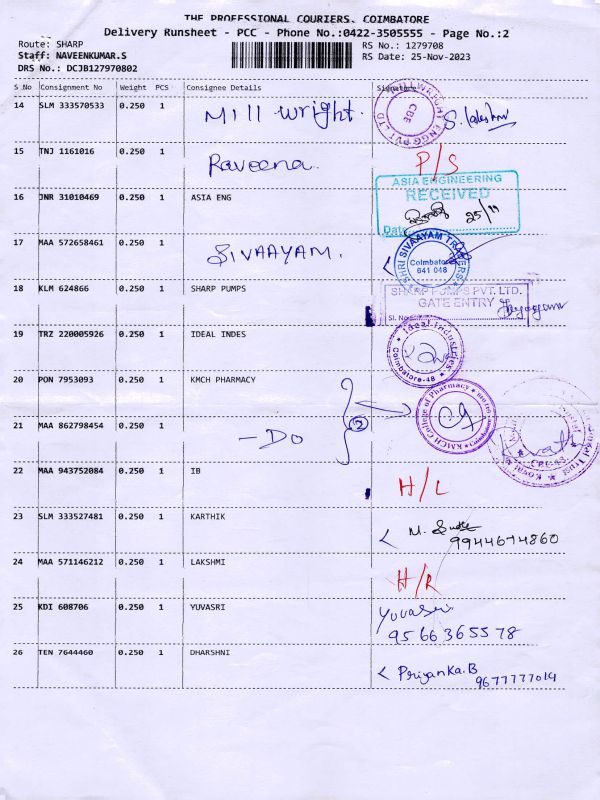 THE PROFESSIONAL COURIERS, COIMBATORE
Delivery Runsheet - PCC - Phone No.:0422-3505555 - Page No.:2
Route: SHARP
RS No.: 1279708
Staff: NAVEENKUMAR.S
RS Date: 25-Nov-2023
DRS No.: DCJB127970802
S No Consignment No Weight PCS Consignee Details Signature
14 SLM 333570533 0.250 1 Mill wright.
CBE
15 TNJ 1161016 0.250 1 Raveena. P/S
16 JNR 31010469 0.250 1 ASIA ENG
ASIA ENGINEERING
RECEIVED
25/11
Date
17 MAA 572658461 0.250 1 SIVAAYAM.
SHRI SIVAAYAM TRADERS
Coimbatore
641 048
18 KLM 624866 0.250 1 SHARP PUMPS
SHARP PUMPS PVT. LTD.
GATE ENTRY
Sl. No
19 TRZ 220005926 0.250 1 IDEAL INDES
Ideal Industries
Coimbatore-48
20 PON 7953093 0.250 1 KMCH PHARMACY
KMCH College of Pharmacy
21 MAA 862798454 0.250 1 - DO
2
22 MAA 943752084 0.250 1 IB H/L
23 SLM 333527481 0.250 1 KARTHIK
9944674860
24 MAA 571146212 0.250 1 LAKSHMI H/R
25 KDI 608706 0.250 1 YUVASRI Yuvasri
9566365578
26 TEN 7644460 0.250 1 DHARSHNI Priyanka.B
9677777014